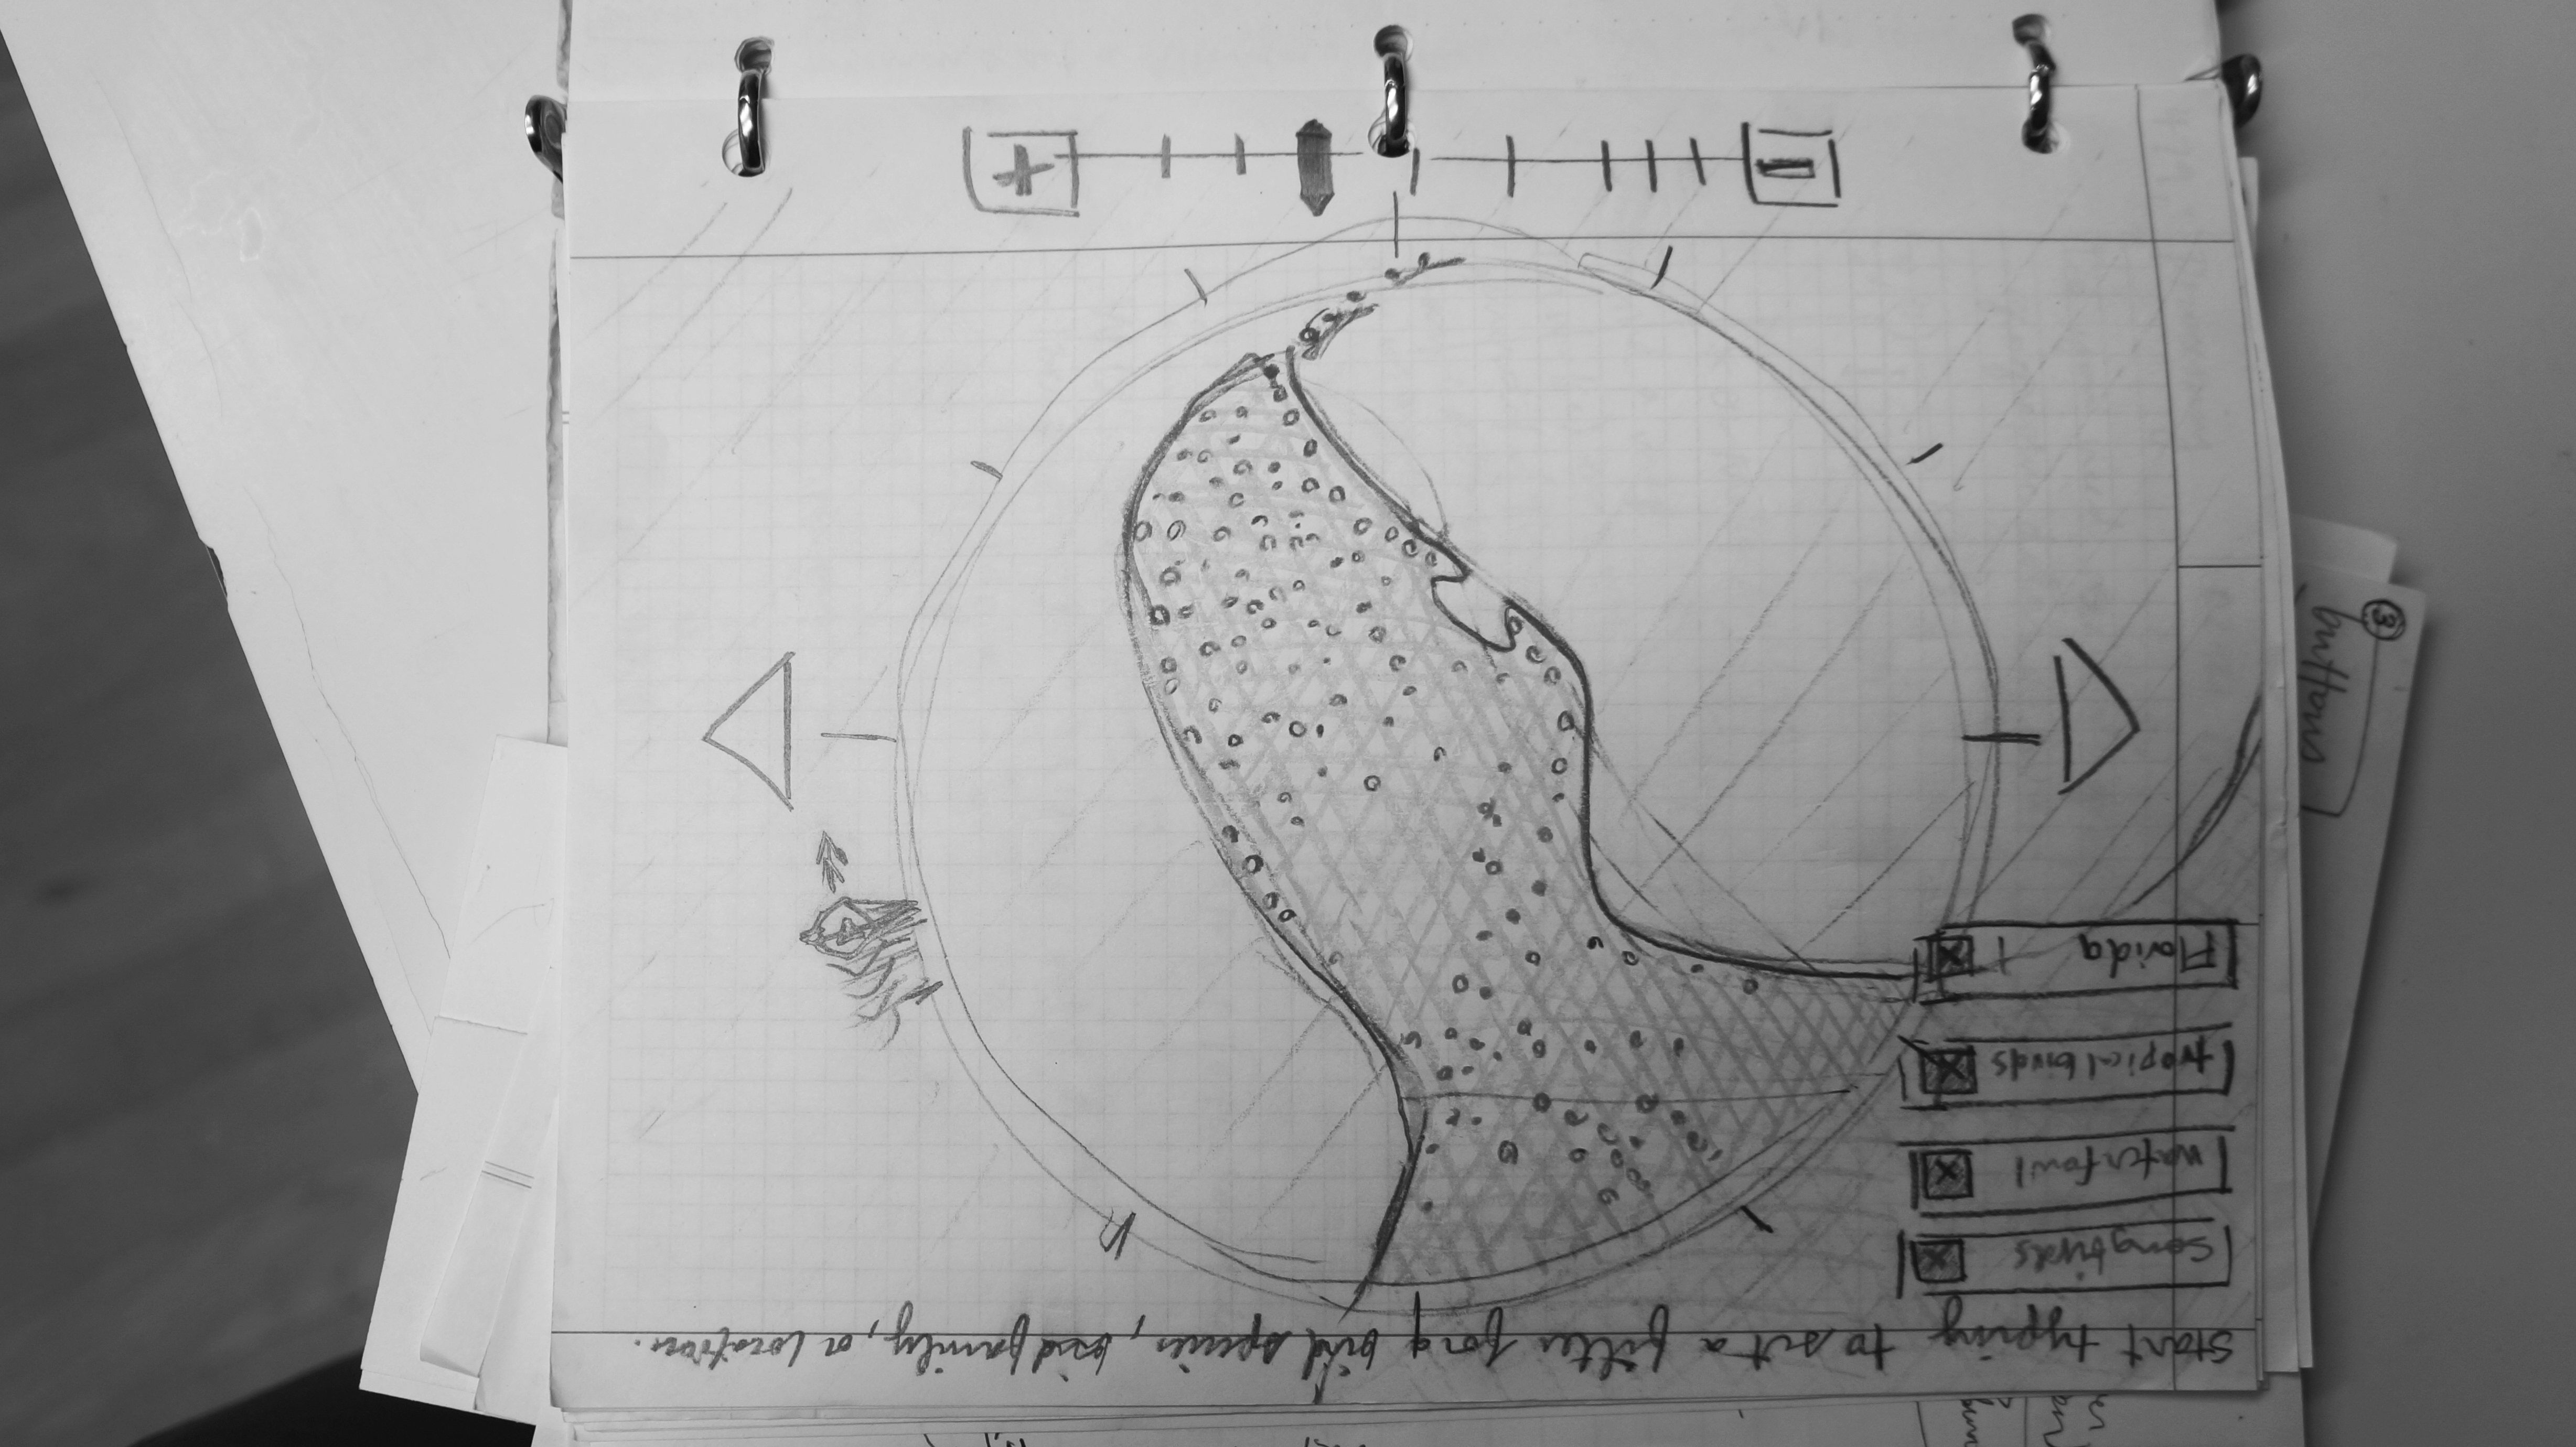 Start typing to set a filter for a bird species, bird family, or location.
Songbirds
Waterfowl
tropical birds
Florida
+
3
buttons